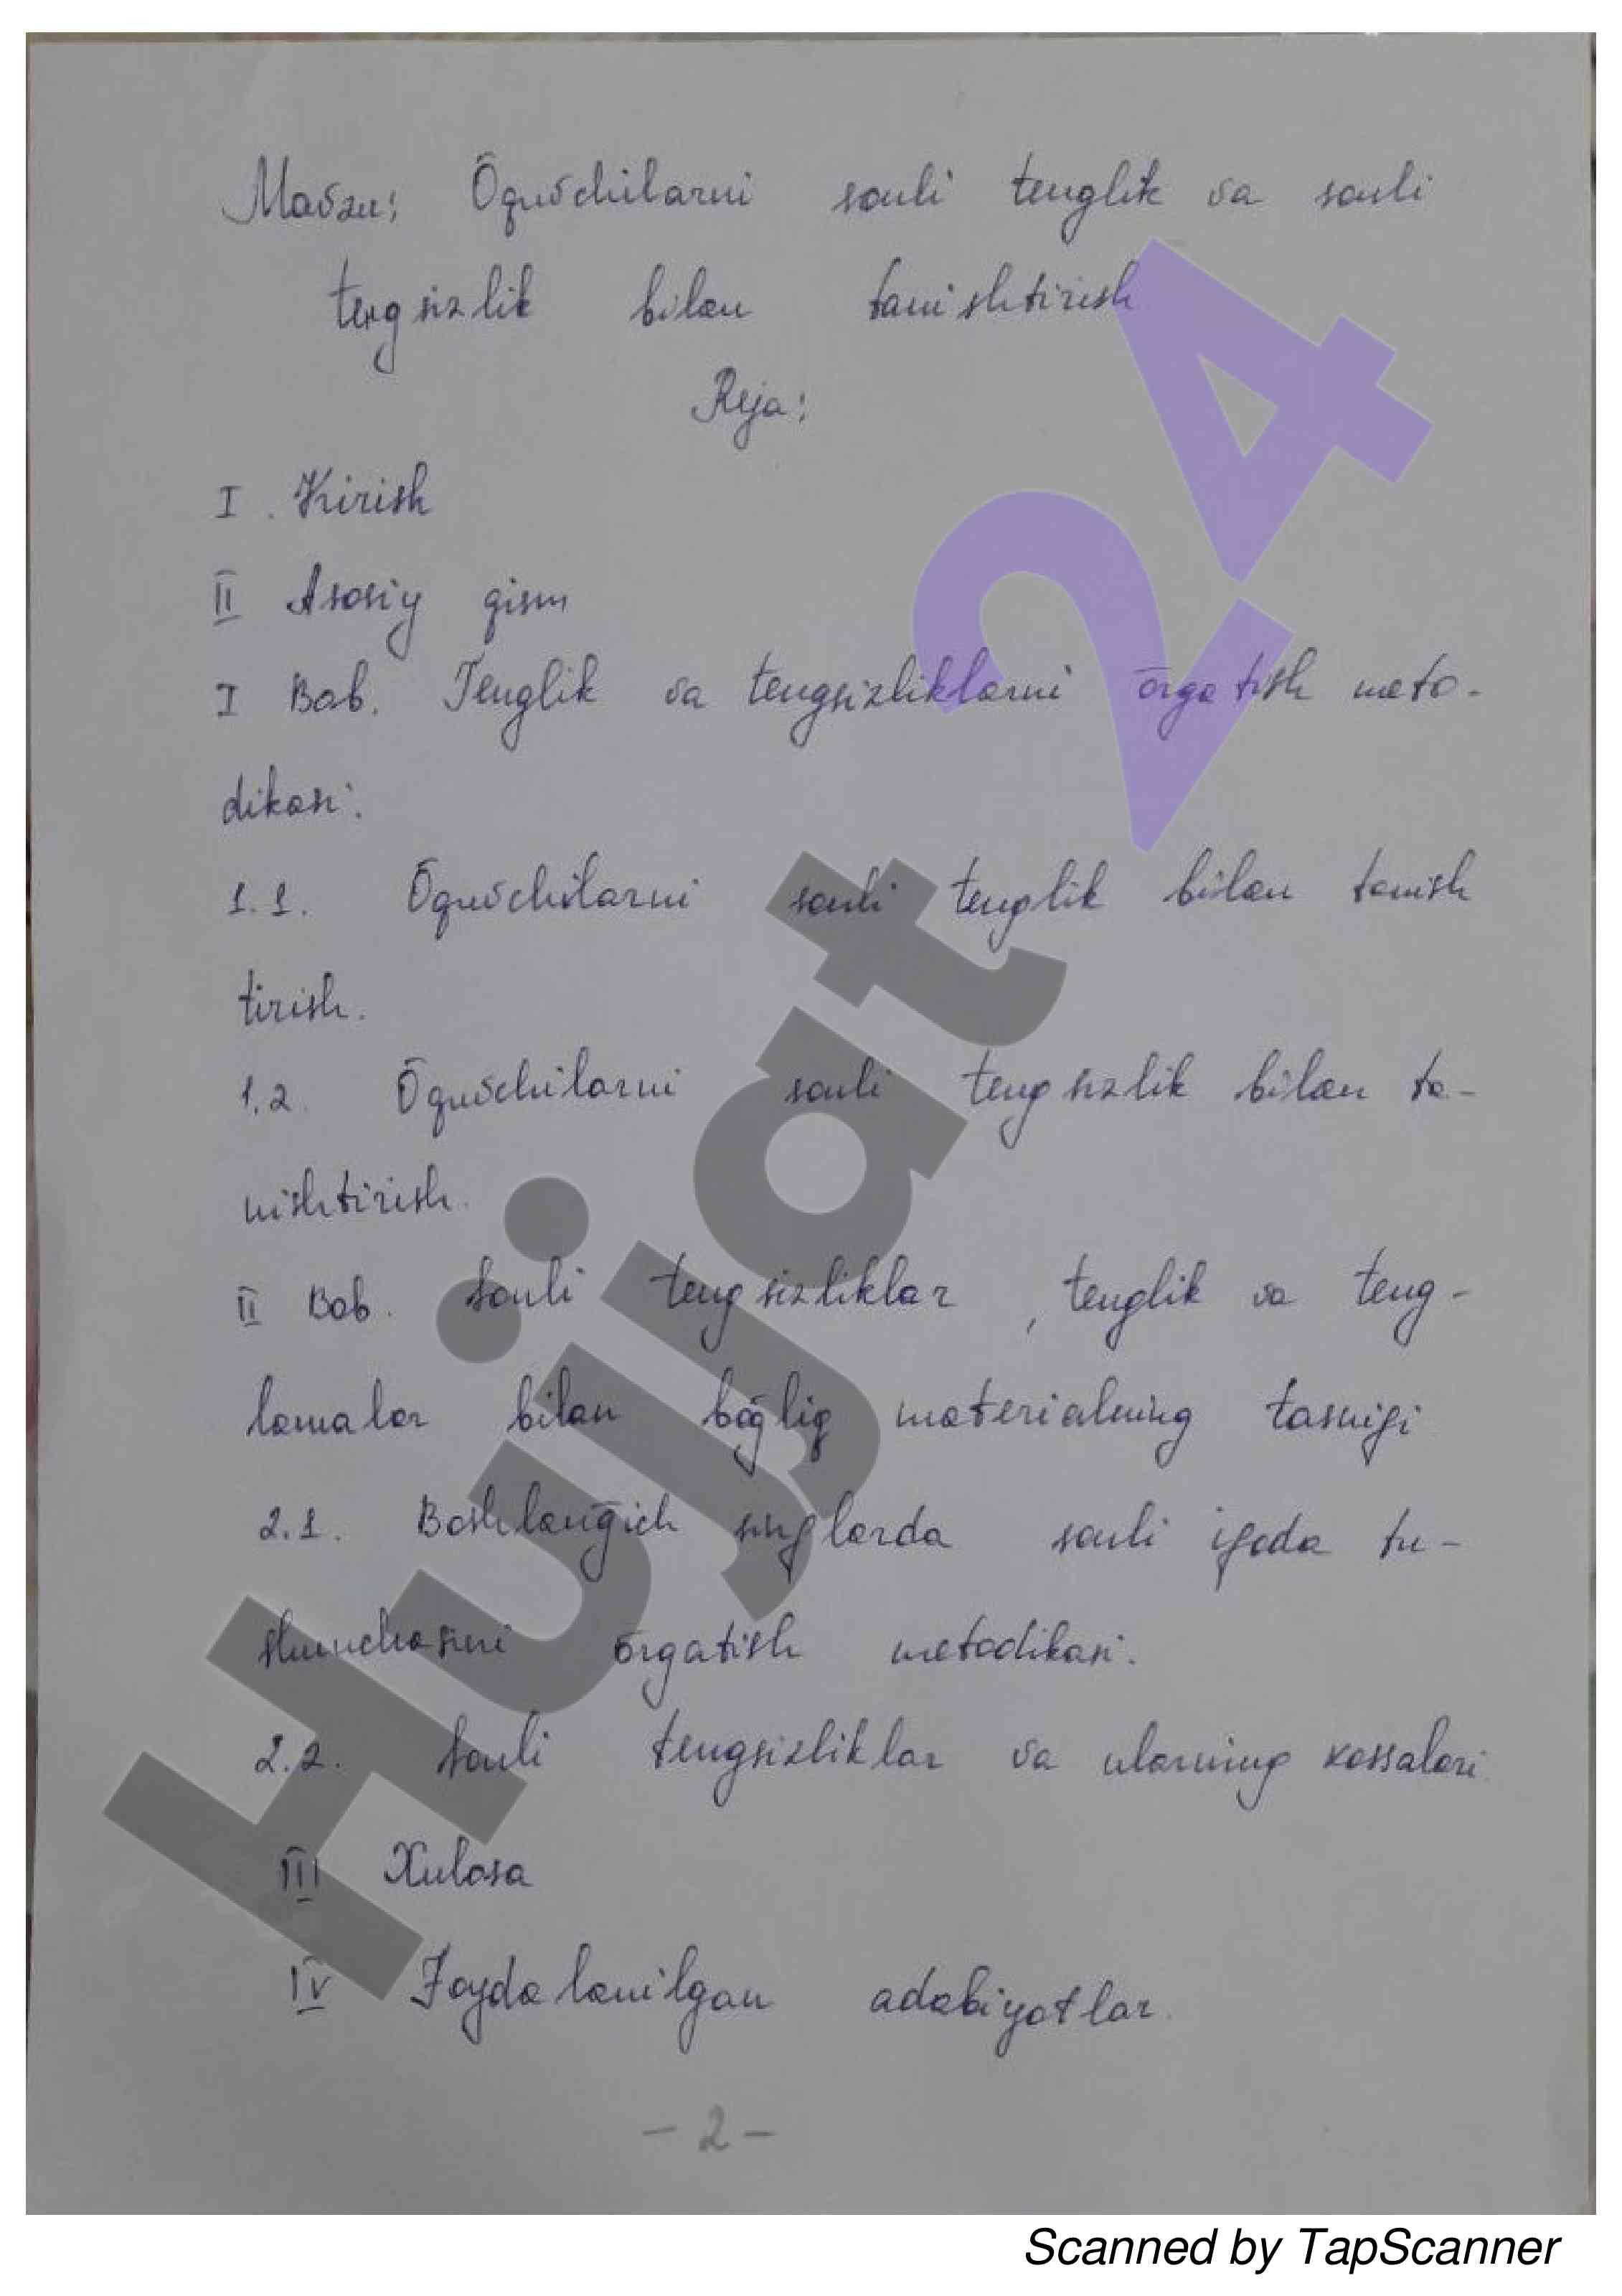 Mavzu: Ōquvchilarni sonli tenglik va sonli
tengsizlik bilan tanishtirish
Reja:
I. Kirish
II Asosiy qism
I Bob. Tenglik va tengsizliklarni ōrgatish meto-
dikasi.
1.1. Ōquvchilarni sonli tenglik bilan tanish
tirish.
1.2. Ōquvchilarni sonli tengsizlik bilan ta-
nishtirish.
II Bob. Sonli tengsizliklar, tenglik va teng-
lamalar bilan bōgliq materialning tasnifi
2.1. Boshlangich sinflarda sonli ifoda tu-
shunchasini ōrgatish metodikasi.
2.2. Sonli tengsizliklar va ularning xossalari.
III Xulosa
IV Foydalanilgan adabiyotlar.
- 2 -
Hujjat 24
Scanned by TapScanner